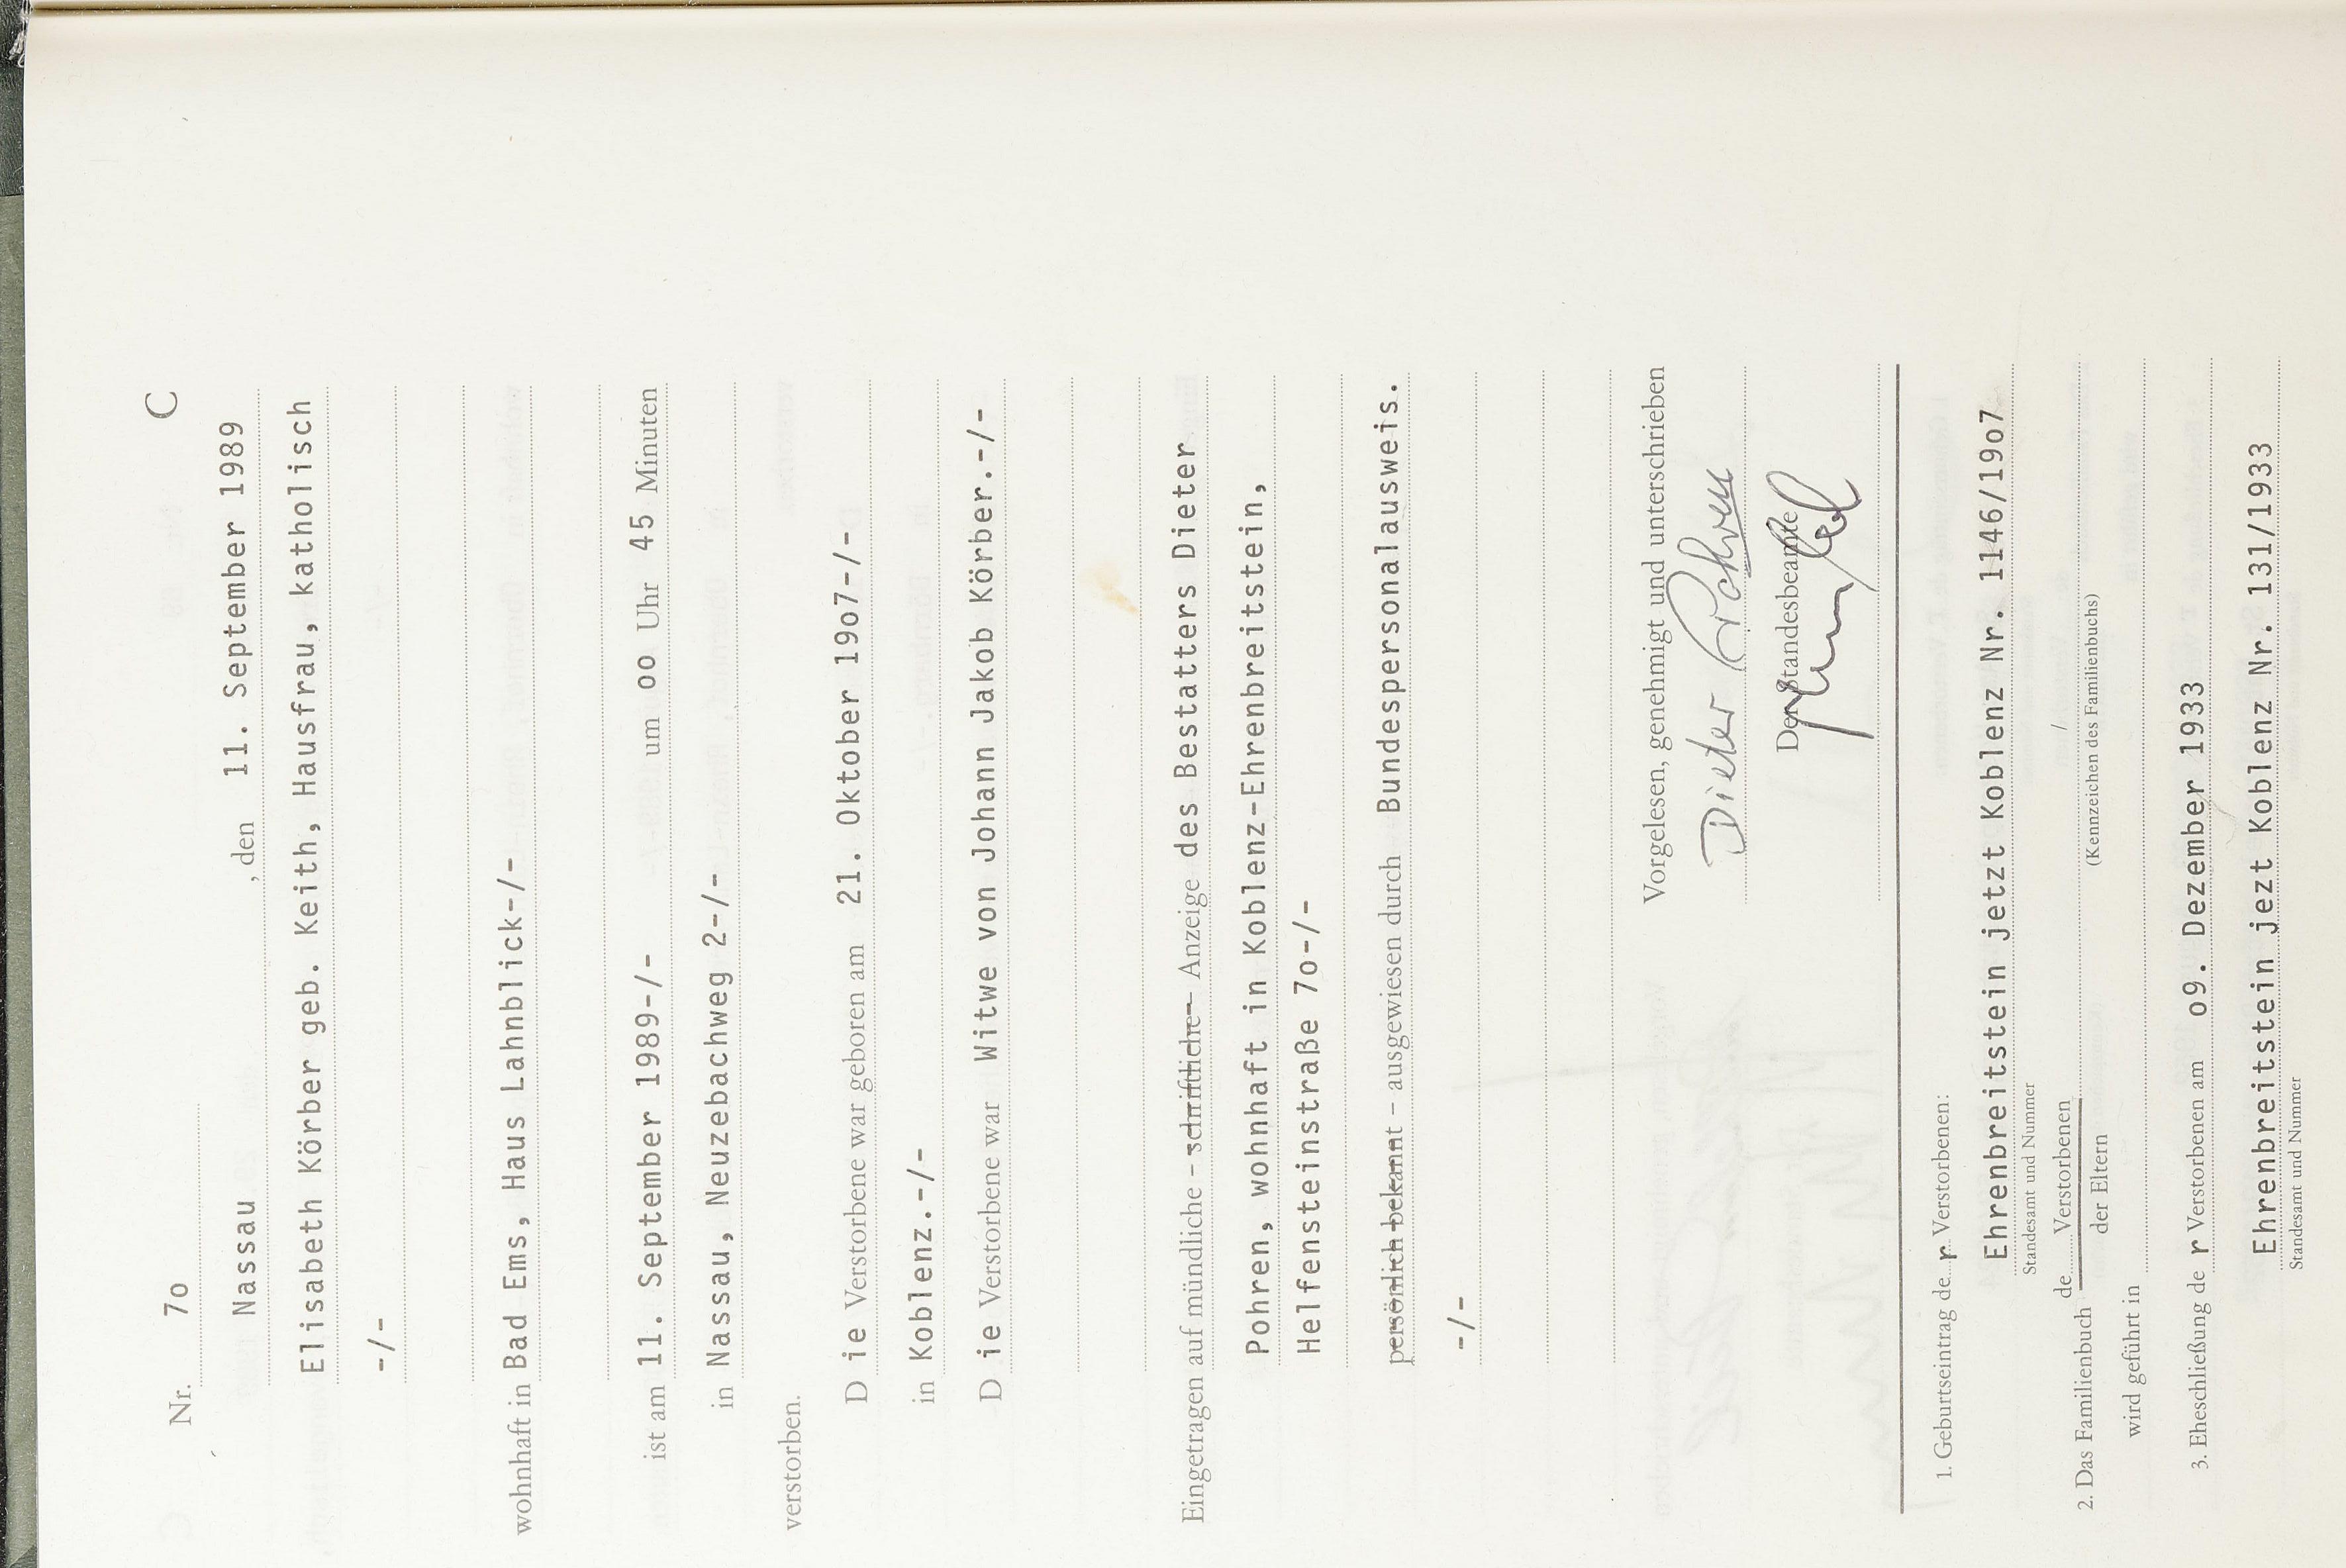 C
Nr. 7o
Nassau , den 11. September 1989
Elisabeth Körber geb. Keith, Hausfrau, katholisch
-/-
wohnhaft in Bad Ems, Haus Lahnblick-/-
ist am 11. September 1989-/- um oo Uhr 45 Minuten
in Nassau, Neuzebachweg 2-/-
verstorben.
D ie Verstorbene war geboren am 21. Oktober 19o7-/-
in Koblenz.-/-
D ie Verstorbene war Witwe von Johann Jakob Körber.-/-
Eingetragen auf mündliche – schriftliche – Anzeige des Bestatters Dieter
Pohren, wohnhaft in Koblenz-Ehrenbreitstein,
Helfensteinstraße 7o-/-
persönlich bekannt – ausgewiesen durch Bundespersonalausweis.
-/-
Vorgelesen, genehmigt und unterschrieben
Dieter Pohren
Der Standesbeamte
1. Geburtseintrag de r Verstorbenen:
Ehrenbreitstein jetzt Koblenz Nr. 1146/19o7
Standesamt und Nummer
de Verstorbenen /
2. Das Familienbuch
der Eltern (Kennzeichen des Familienbuchs)
wird geführt in
3. Eheschließung de r Verstorbenen am o9. Dezember 1933
Ehrenbreitstein jezt Koblenz Nr. 131/1933
Standesamt und Nummer